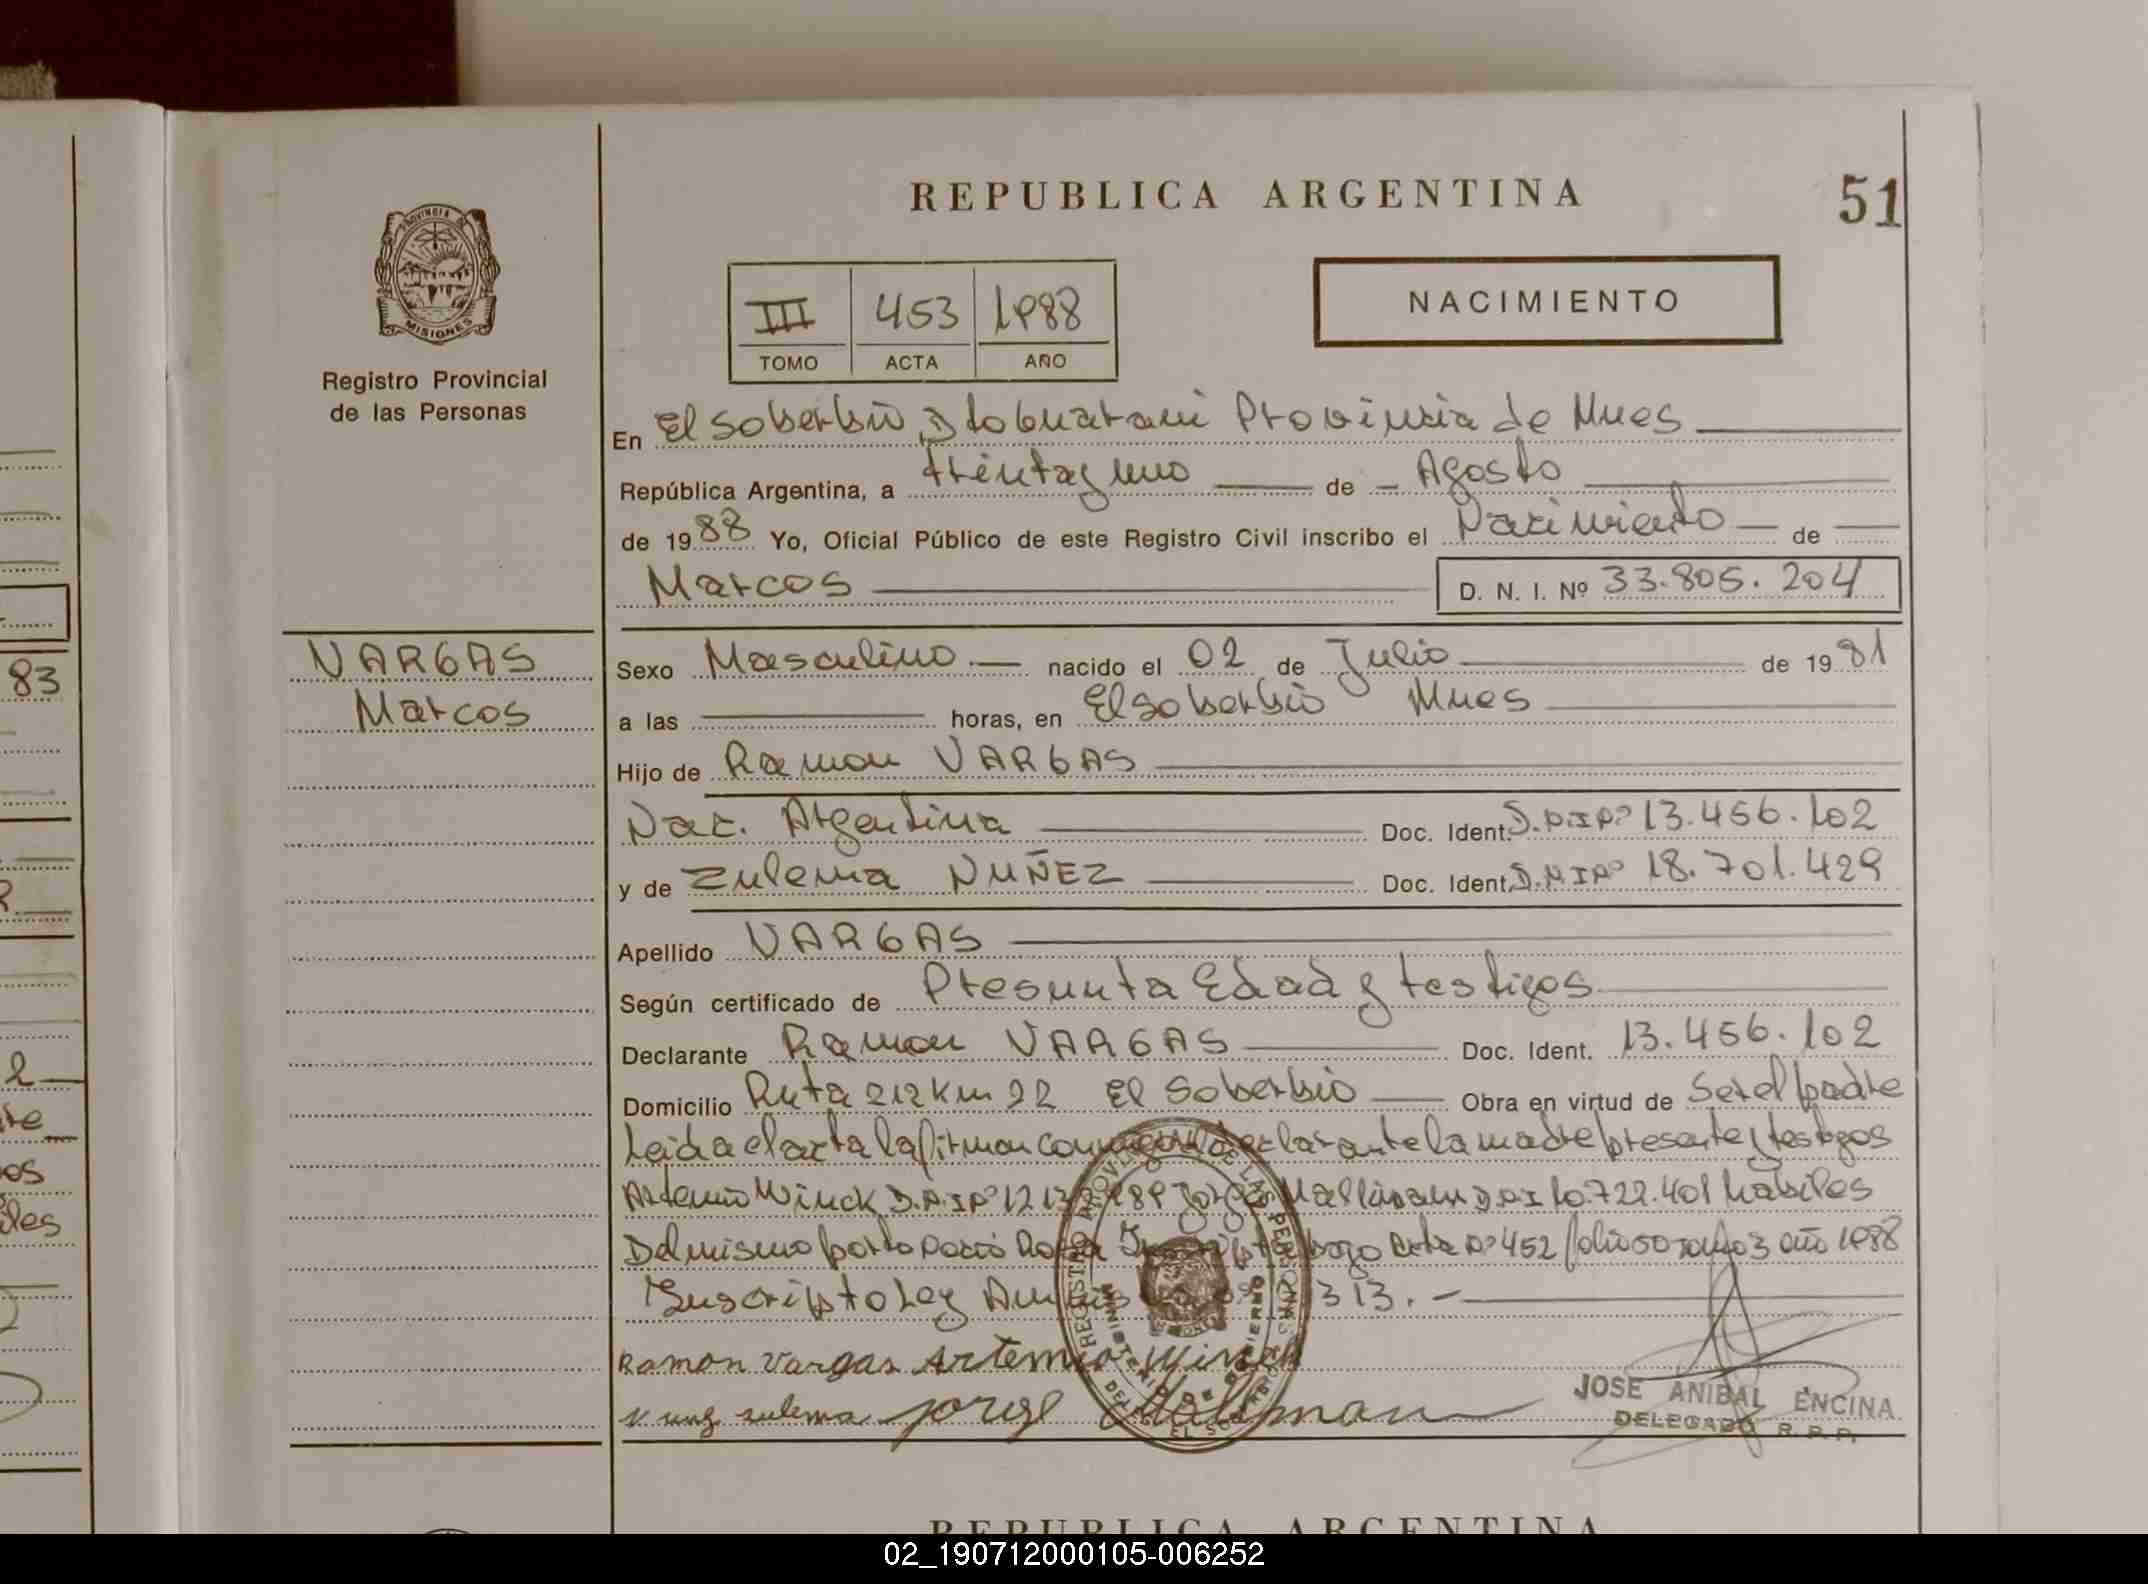 REPUBLICA ARGENTINA
51
PROVINCIA DE
MISIONES
Registro Provincial
de las Personas
III 453 1988
TOMO ACTA AÑO
NACIMIENTO
En El Soberbio, Dto Guarani Provincia de Mnes
República Argentina, a treinta y uno de Agosto
de 1988 Yo, Oficial Público de este Registro Civil inscribo el Nacimiento de
Marcos D. N. I. Nº 33.805.204
VARGAS
Marcos
Sexo Masculino nacido el 02 de Julio de 1981
a las horas, en El Soberbio Mnes
Hijo de Ramon VARGAS
Nac. Argentina Doc. Ident. D.N.I Nº 13.456.102
y de Zulema NUÑEZ Doc. Ident. D.N.I Nº 18.701.429
Apellido VARGAS
Según certificado de Presunta Edad y testigos
Declarante Ramon VARGAS Doc. Ident. 13.456.102
Domicilio Ruta 212 Km 22 El Soberbio Obra en virtud de Ser el padre
Leida el acta la firman conmigo el declarante la madre presente y testigos
Artemio Winck D.N.I Nº 12 Jorge D.N.I 10.722.401 habiles
Del mismo parto nacio bajo Acta Nº 452 folio 50 tomo 3 año 1988
Inscripto Ley 313.-
Ramon Vargas Artemio Winck
zulema jorge
JOSE ANIBAL ENCINA
DELEGADO R. P. P.
REGISTRO PROVINCIAL DE LAS PERSONAS
MINISTERIO DE GOBIERNO
EL SOBERBIO
83
2
REPUBLICA ARGENTINA
02_190712000105-006252